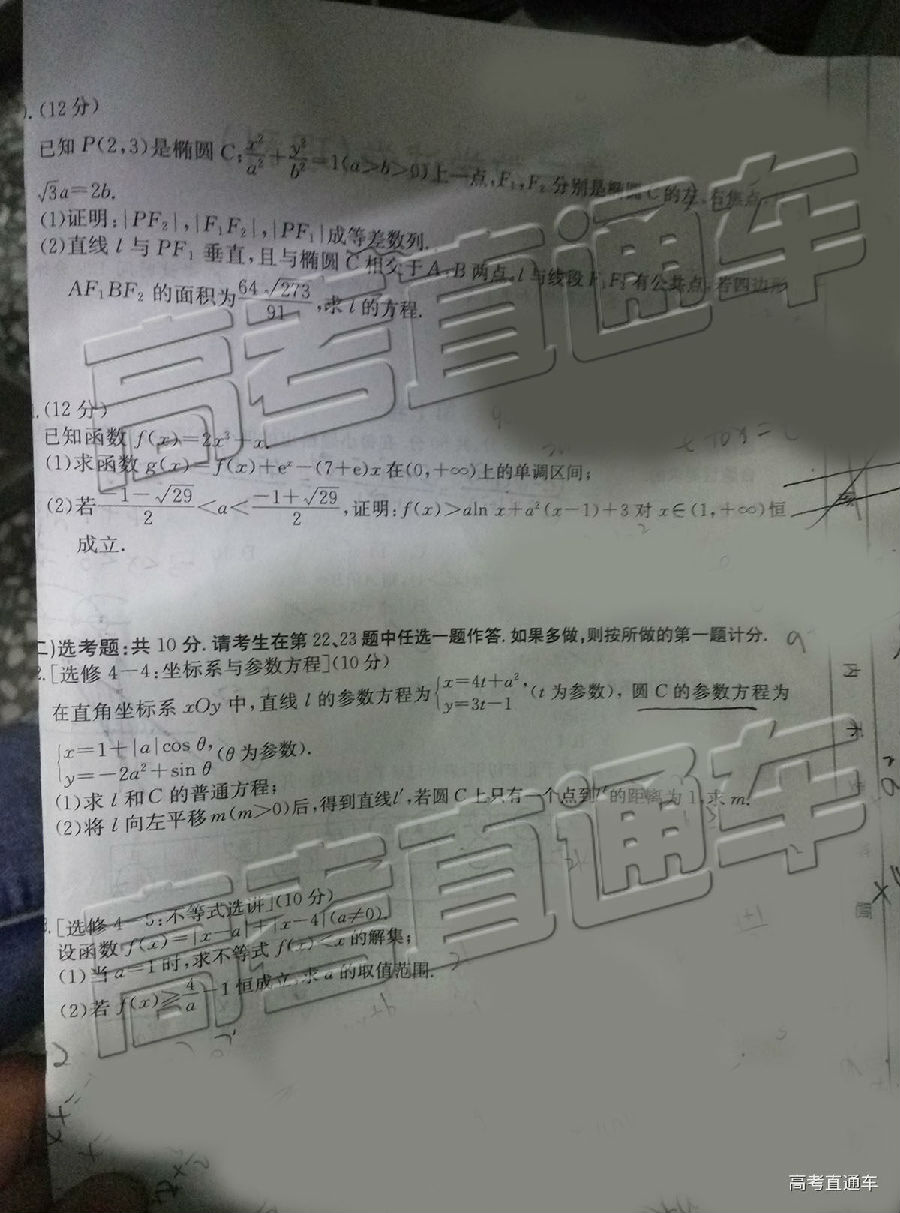 .(12分)
已知 P(2,3)是椭圆 C:x²/a²+y²/b²=1(a>b>0)上一点,F₁,F₂ 分别是椭圆 C 的左、右焦点,
√3a=2b.
(1)证明:|PF₂|,|F₁F₂|,|PF₁|成等差数列.
(2)直线 l 与 PF₁ 垂直,且与椭圆 C 相交于 A,B 两点,l 与线段 F₁F₂ 有公共点,若四边形
AF₁BF₂ 的面积为64√273/91,求 l 的方程.
.(12分)
已知函数 f(x)=2x³+x.
(1)求函数 g(x)=f(x)+eˣ-(7+e)x 在(0,+∞)上的单调区间;
(2)若 -1-√29/2<a<-1+√29/2,证明:f(x)>aln x+a²(x-1)+3 对 x∈(1,+∞)恒
成立.
二)选考题:共 10 分.请考生在第 22、23 题中任选一题作答.如果多做,则按所做的第一题计分.
2.[选修 4-4:坐标系与参数方程](10分)
在直角坐标系 xOy 中,直线 l 的参数方程为{x=4t+a², y=3t-1 (t 为参数), 圆 C 的参数方程为
{x=1+|a|cos θ, y=-2a²+sin θ (θ为参数).
(1)求 l 和 C 的普通方程;
(2)将 l 向左平移 m(m>0)后,得到直线l′,若圆 C 上只有一个点到 l′ 的距离为 1,求 m.
3.[选修 4-5:不等式选讲](10分)
设函数 f(x)=|x-a|+|x-4|(a≠0).
(1)当 a=1 时,求不等式 f(x)<x 的解集;
(2)若 f(x)≥4/a-1 恒成立,求 a 的取值范围.
高考直通车
高考直通车
高考直通车